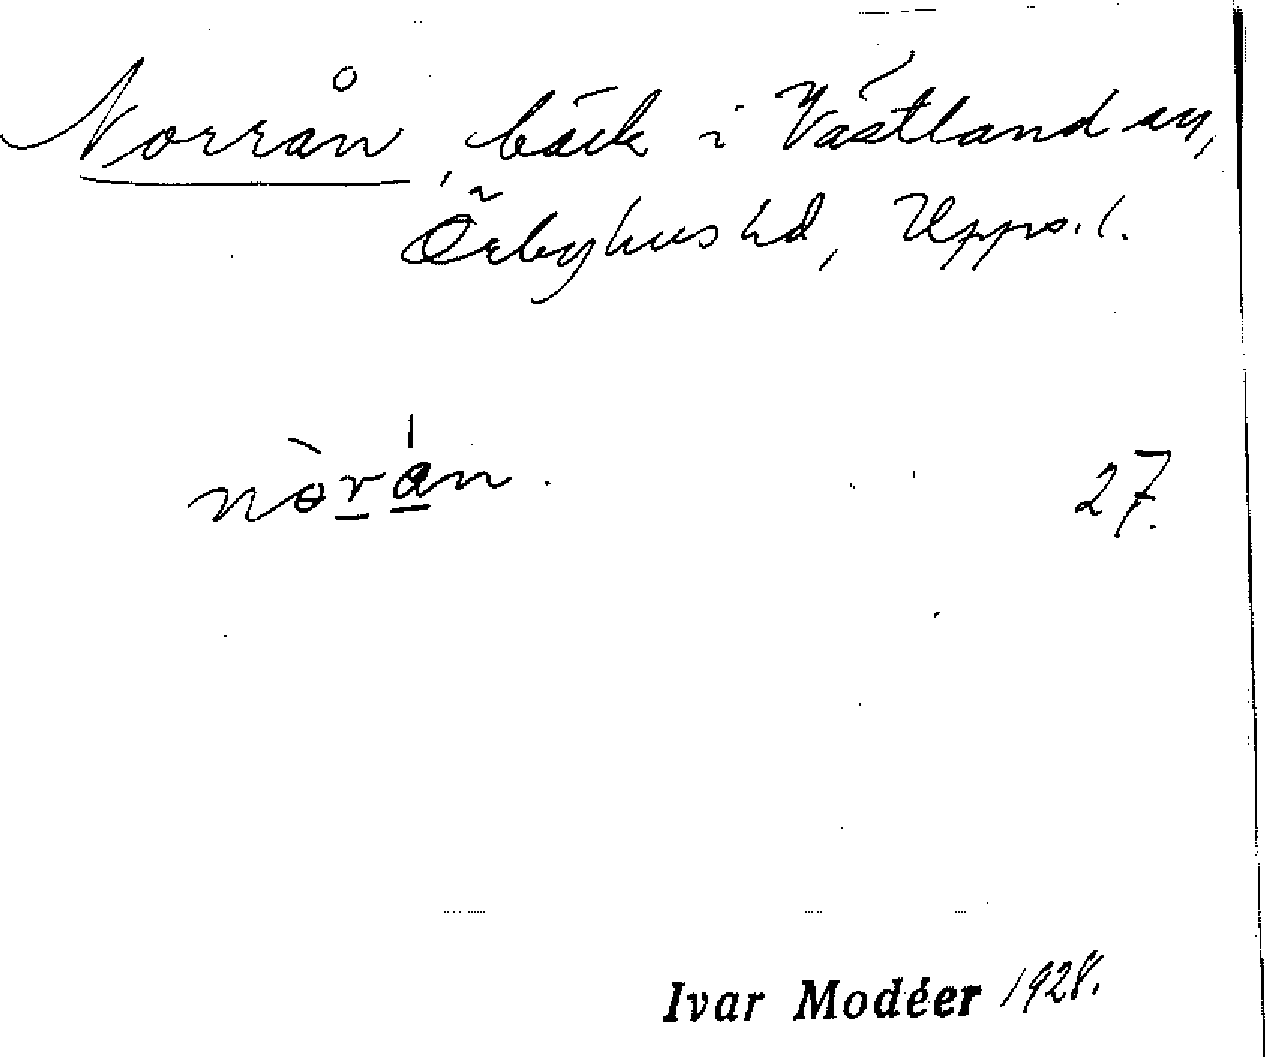 Norrån, bäck i Västland sn,
Örbyhus hd, Upps. l.
nòrán.
27.
Ivar Modéer 1928.